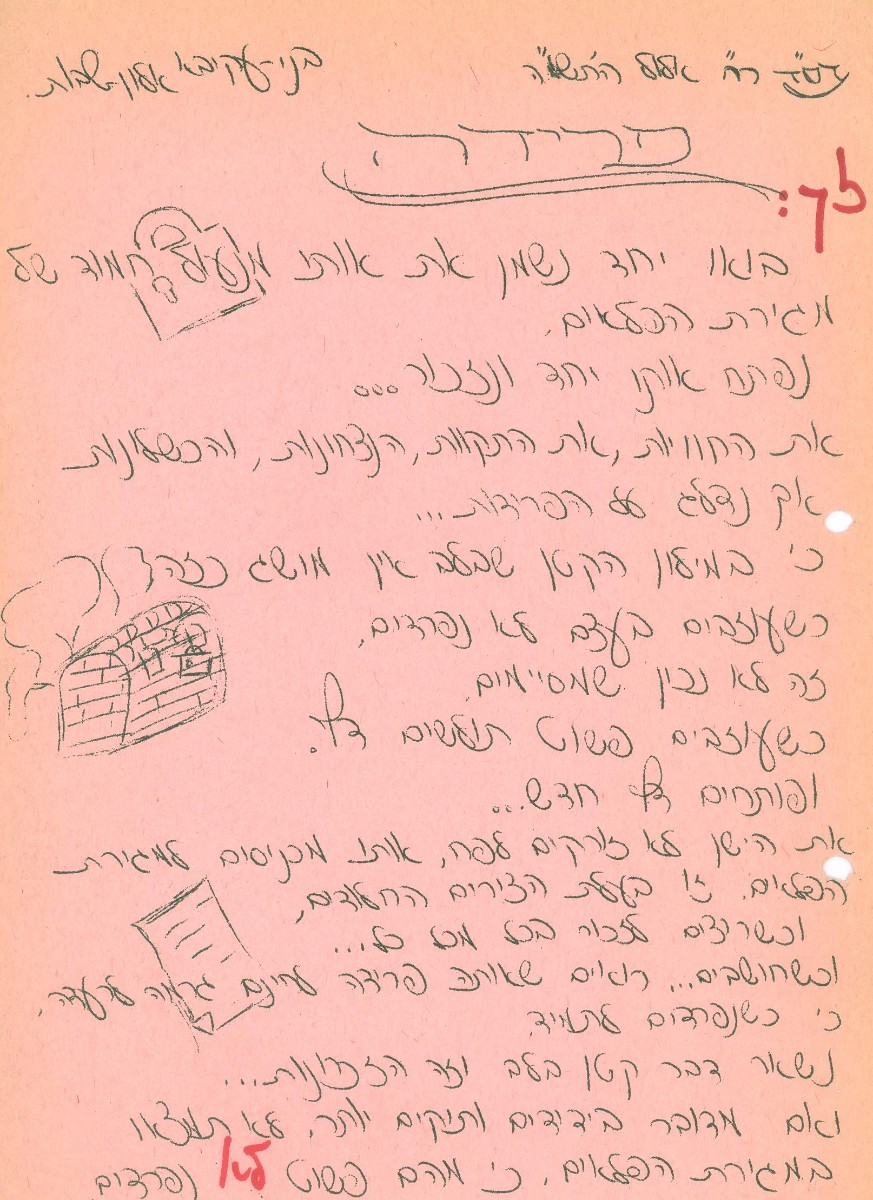 בס"ד ר"ח אלול ה'תש"ה
בני-עקיבא אלון-שבות.
פרידה
לך:
בואו יחד נשמן את אותו מנעול חמוד של
מגירת הפלאים.
נפתח אותו יחד ונזכור...
את החוויות, את התקוות, הנצחונות, והכשלונות
אך נדלג על הפרידות...
כי במילון הקטן שבלב אין מושג כזה!
כשעוזבים בעצם לא נפרדים,
זה לא נכון שמסיימים
כשעוזבים פשוט תולשים דף.
ופותחים דף חדש...
את הישן לא זורקים לפח, אותו מכניסים למגירת
הפלאים. זו בעלת הצירים החלודים,
וכשרוצים לזכור בכל מכל כל...
וכשחושבים... רואים שאותה פרידה עלינו גרמה לרעדה,
כי כשנפרדים לתמיד
נשאר דבר קטן בלב וזה הזכרונות...
ואם מדובר בידידים ותיקים יותר, לא תמצאו
במגירת הפלאים. כי מהם פשוט לא! נפרדים